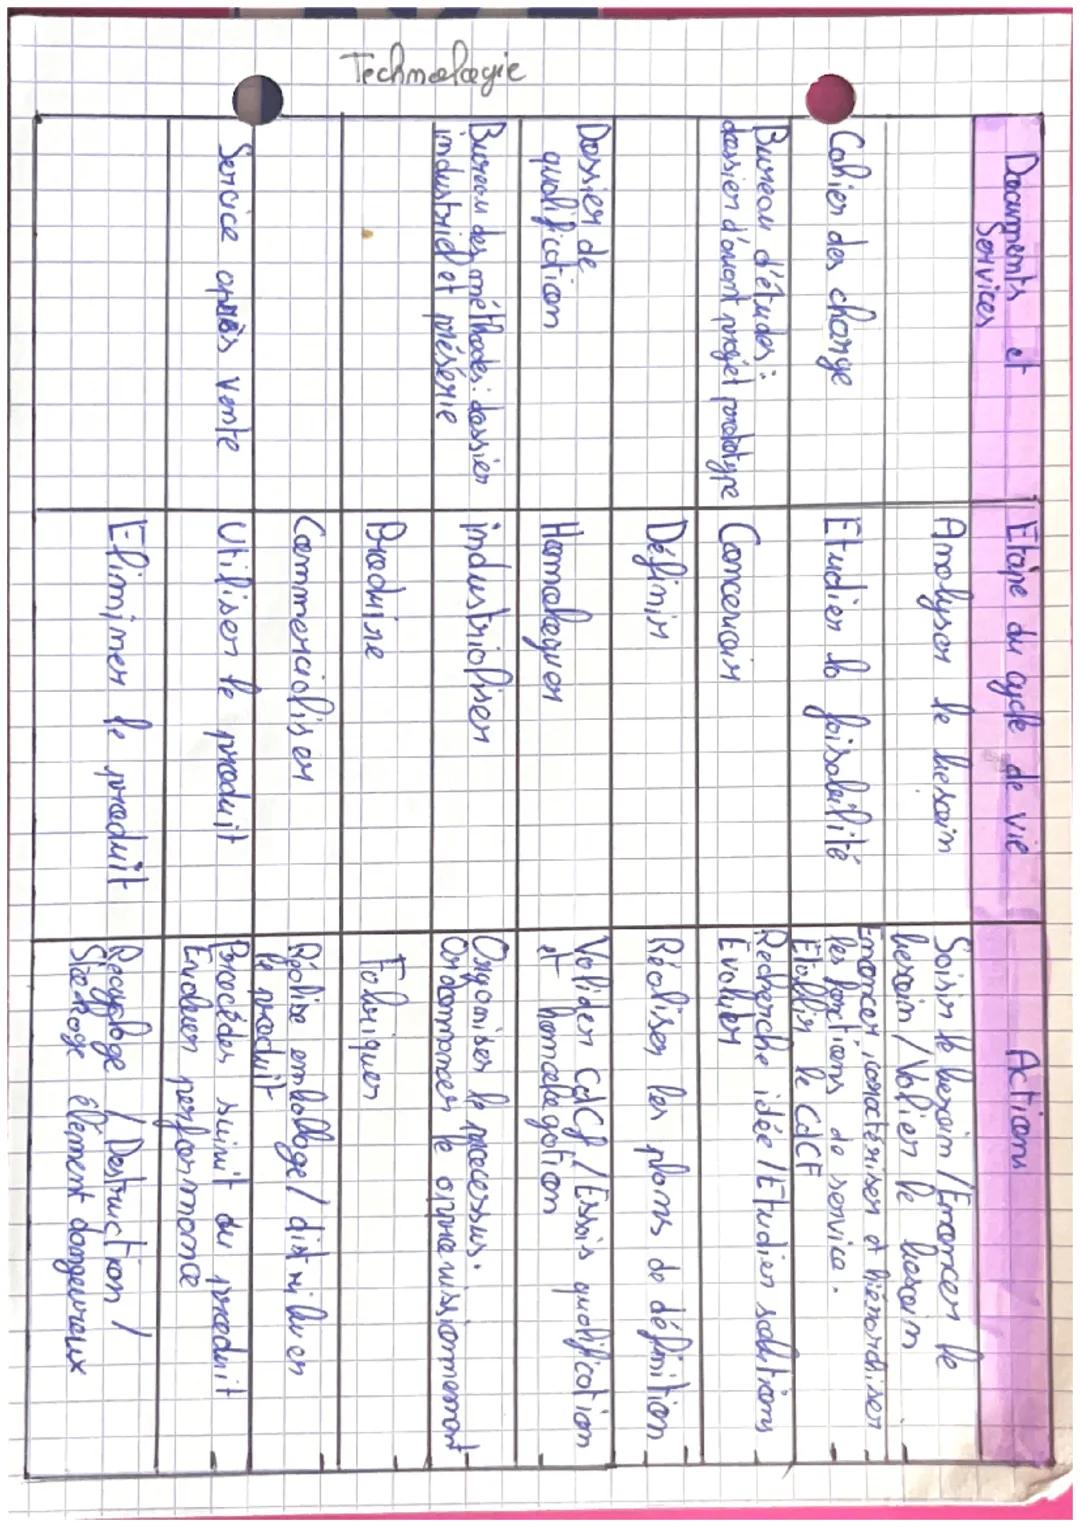 Technologie
Documents et
Services
Etape du cycle de vie
Actions
Analyser le besoin
Saisir le besoin / Enoncer le
besoin / Valier le besoin
Cahier des change
Etudier la faisabilité
Enoncer, caractériser et hiérarchiser
les fonctions de service.
Etablir le CdCF
Bureau d'études :
dossier d'avant projet prototype
Concevoir
Recherche idée / Etudier solutions
Evaluer
Définir
Réaliser les plans de définition
Dossier de
qualification
Homologuer
Valider CdCf / Essais qualification
et homologation
Bureau des méthodes : dossier
industriel et présérie
industrialiser
Organiser le processus.
Ordonnancer le
Produire
Fabriquer
Commercialiser
Réalise emballage / distribuer
le produit
Service après vente
Utiliser le produit
Procédés suivit du produit
Evaluer performance
Eliminer le produit
Recyclage / Destruction /
Stockage élément dangeureux